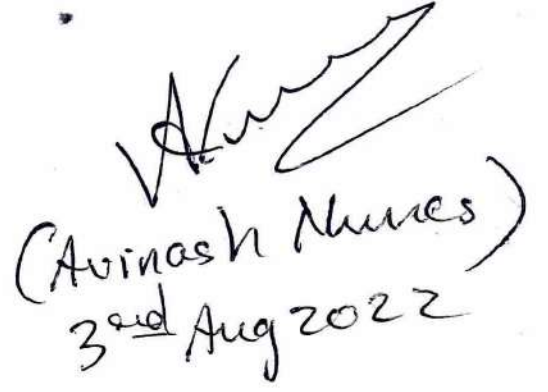 (Avinash Nunes)
3rd Aug 2022